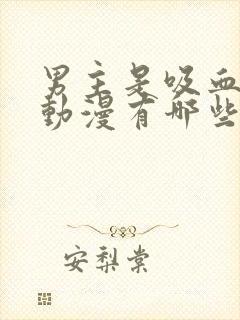 男主是吸血
動漫有哪些
安梨棠